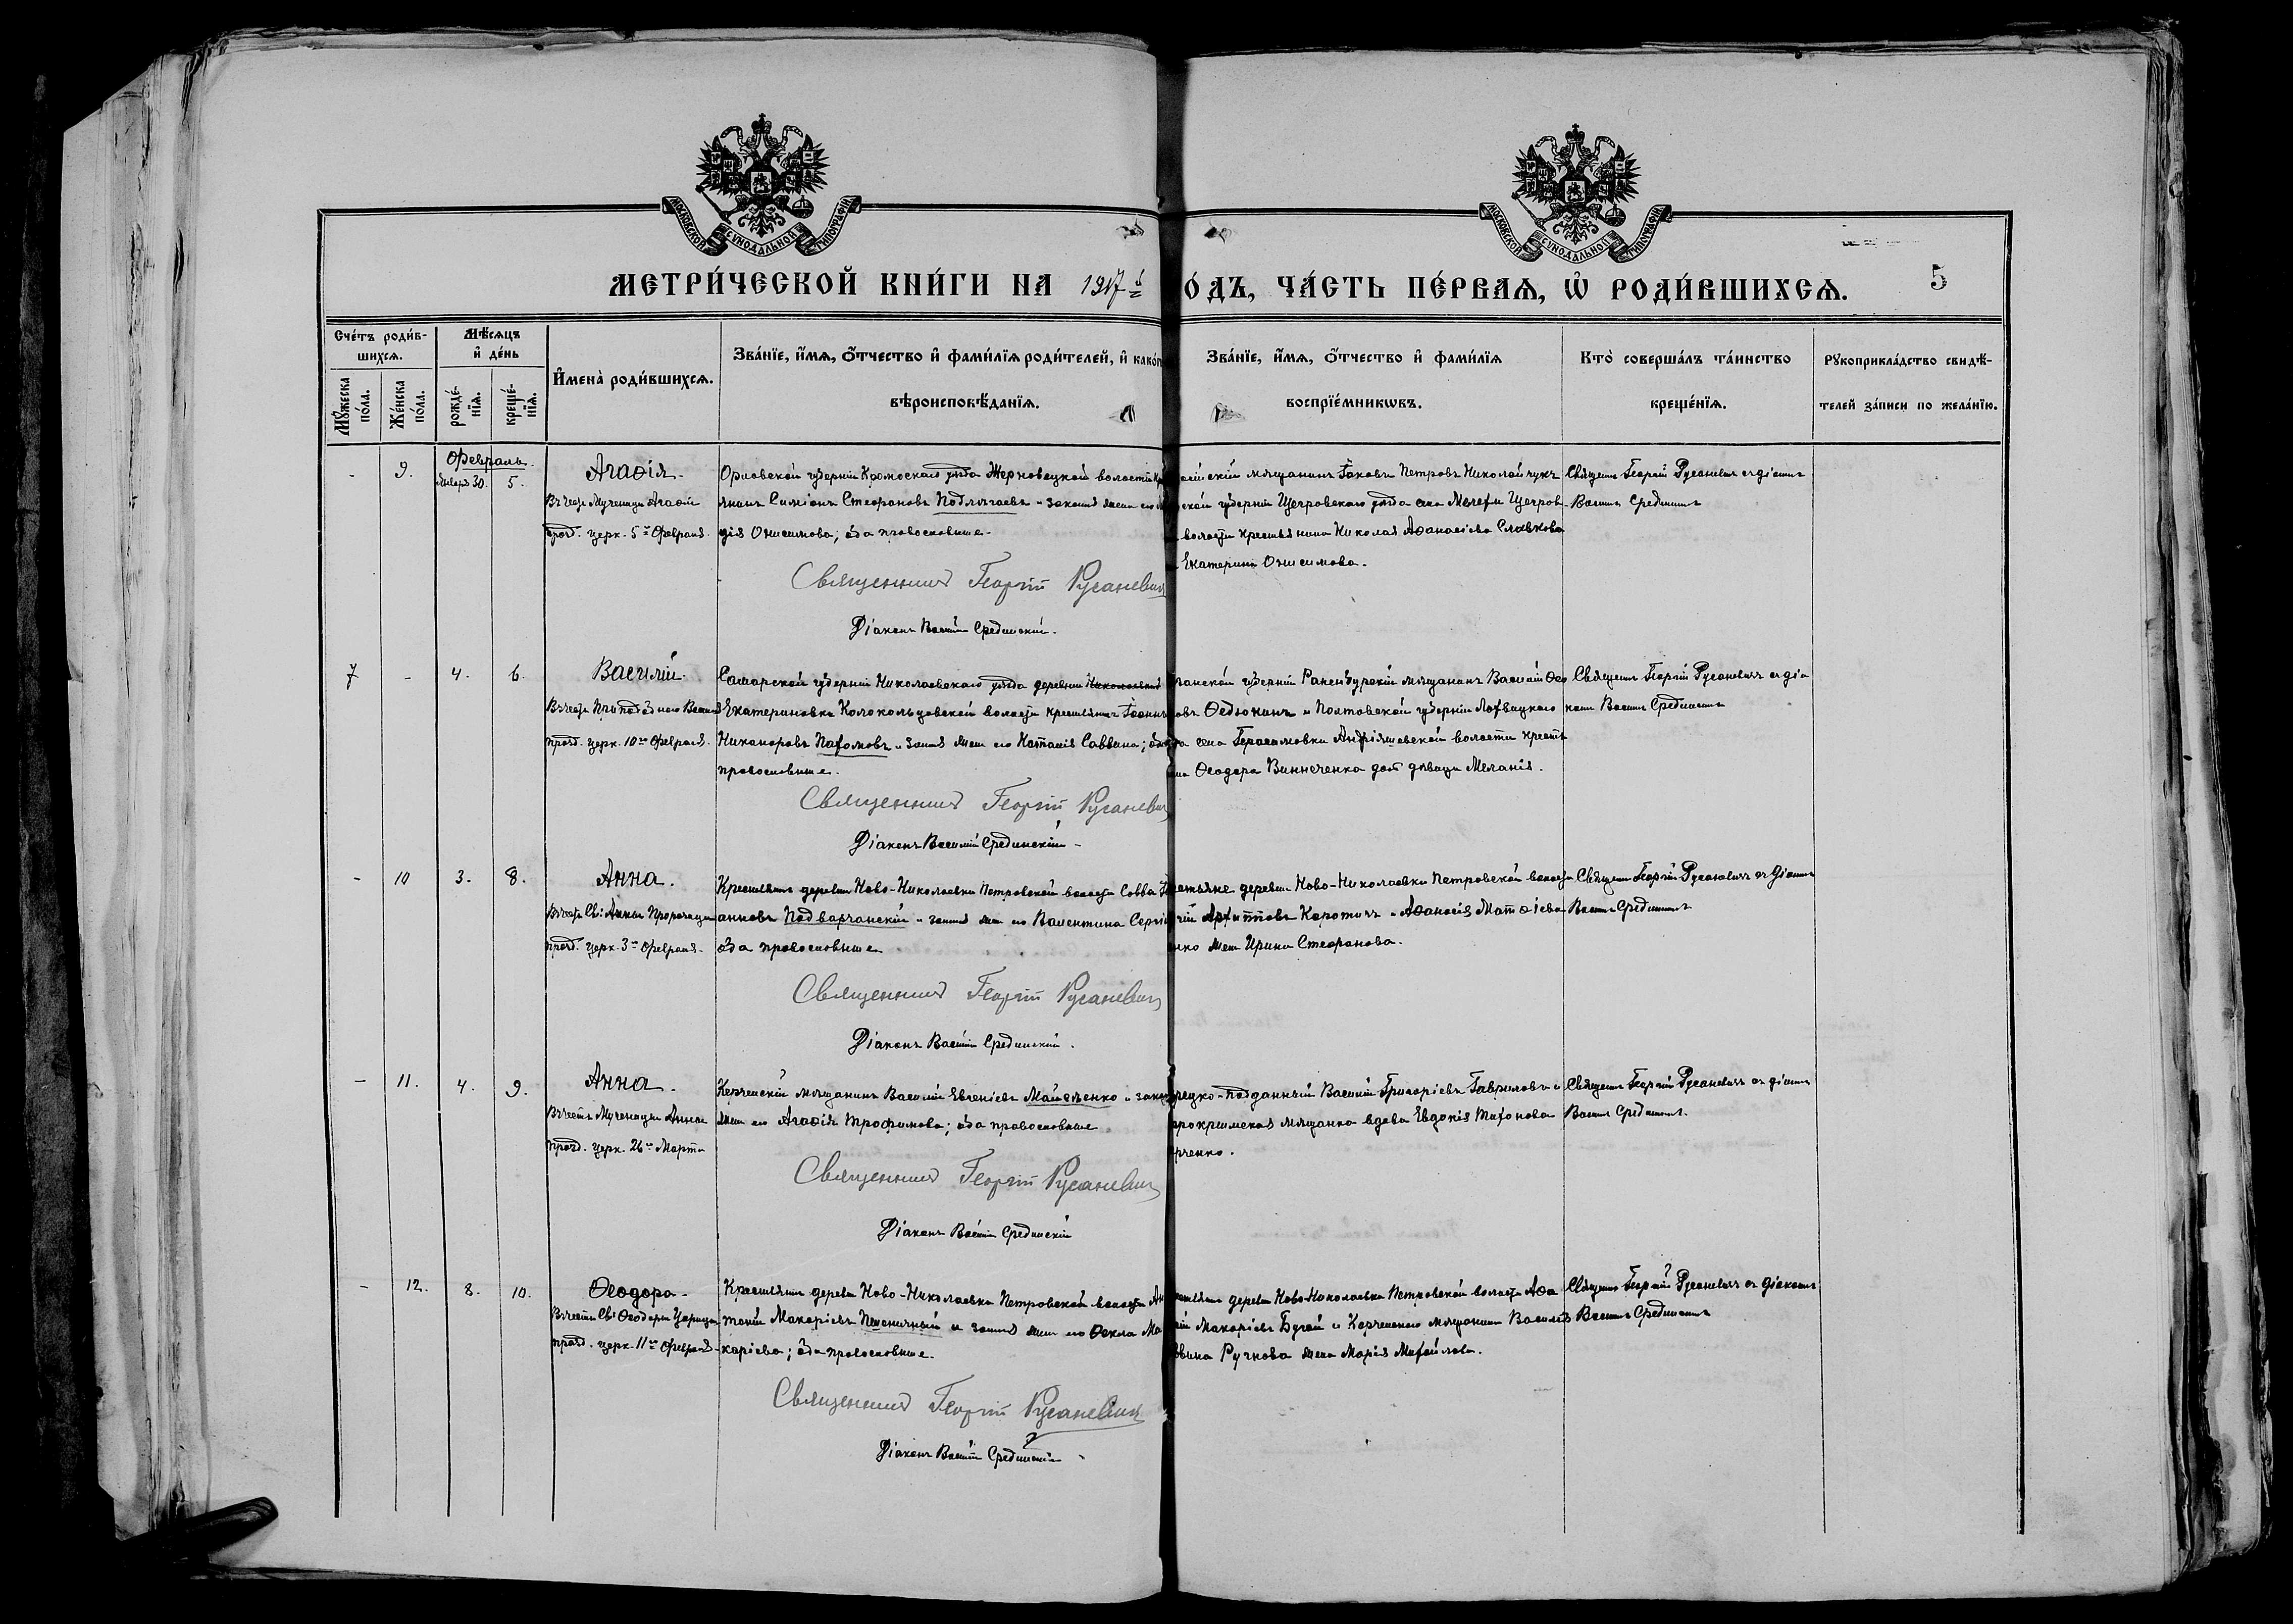 МОСКОВСКОЙ СУНОДАЛЬНОЙ ТИПОГРАФІИ
МОСКОВСКОЙ СУНОДАЛЬНОЙ ТИПОГРАФІИ
МЕТРИ́ЧЕСКОЙ КНИ́ГИ НА 1917й
О́ДЪ, ЧА́СТЬ ПЕ́РВАѦ, Ѡ҆ РОДИ́ВШИХСѦ.
5
Сче́тъ роди́в-
шихсѧ.
Мꙋ́жеска по́ла.
Же́нска по́ла.
Мѣ́сѧцъ
и҆ де́нь
рожде́-нїѧ.
креще́-нїѧ.
И҆мена̀ роди́вшихсѧ.
Зва́нїе, и҆́мѧ, ѻ҆́тчество и҆ фами́лїѧ роди́телей, и҆ како́г
вѣроисповѣ́данїѧ.
Зва́нїе, и҆́мѧ, ѻ҆́тчество и҆ фами́лїѧ
воспрїе́мникѡвъ.
Кто̀ соверша́лъ та́инство
креще́нїѧ.
Рꙋкоприкла́дство свидѣ́-
телей за́писи по жела́нїю.
-
9.
Февраль.
Января 30.
5.
Агаѳія.
Въ честь Мученицы Агаѳіи
празд. церк. 5го Февраля.
Орловской губерніи Кромскаго уѣзда Жерновецкой волости кр
янинъ Симіонъ Стефановъ Подлѣгаевъ и законная жена его
дія Онисимова; оба православные.
Священникъ Георгій Русаневич
Діаконъ Василій Срединскій.
мѣщанинъ Іаковъ Петровъ Николайчукъ
ской губерніи Щегровскаго уѣзда села Щегров
волости крестьянина Николая Аѳанасіева Славкова
Екатерина Онисимова.
Священникъ Георгій Русаневичъ съ діакономъ
Василіемъ Срединскимъ
7
-
4.
6.
Василій.
Въ честь Преподобнаго Василія
празд. церк. 10го Февраля.
Самарской губерніи Николаевскаго уѣзда деревни Николаевки
Екатериновки Колокольцовской волости крестьянинъ Іоаннъ
Никаноровъ Пахомовъ и законная жена его Наталія Саввина; оба
православные.
Священникъ Георгій Русаневич
Діаконъ Василій Срединскій
занской губерніи Раненбургскій мѣщанинъ Василій Ѳео
овъ Ѳедюкинъ и Полтавской губерніи Лохвицкаго
да села Герасимовки Андріяшевской волости крестья
ина Ѳеодора Винниченка дочь дѣвица Меланія.
Священникъ Георгій Русаневичъ съ діа
кономъ Василіемъ Срединскимъ
-
10
3.
8.
Анна.
Въ честь Св. Анны Пророчицы
празд. церк. 3го Февраля.
Крестьянинъ деревни Ново-Николаевки Петровской волости Савва І
анновъ Подварчанскій и законная жена его Валентина Сергі
оба православные
Священникъ Георгій Русаневич
Діаконъ Василій Срединскій.
стьяне деревни Ново-Николаевки Петровской волости
гій Архипповъ Коротичъ и Аѳанасія Матѳіева
енко жена Ирина Стефанова.
Священникъ Георгій Русаневичъ съ діакономъ
Василіемъ Срединскимъ
-
11.
4.
9.
Анна.
Въ честь Мученицы Анны
празд. церк. 26го Марта
Керченскій мѣщанинъ Василій Евгеніевъ Мойсѣенко и закон
жена его Агаѳія Трофимова; оба православные
Священникъ Георгій Русаневич
Діаконъ Василій Срединскій
рецко-подданный Василій Григоріевъ Гавриловъ и
арокрымская мѣщанка вдова Евдокія Тихонова
рченко.
Священникъ Георгій Русаневичъ съ діакономъ
Василіемъ Срединскимъ.
-
12.
8.
10.
Ѳеодора.
Въ честь Св. Ѳеодоры Царицы
празд. церк. 11го Февраля
Крестьянинъ деревни Ново-Николаевки Петровской волости Ан
тоній Макаріевъ Пшеничный и законная жена его Ѳекла Ма
каріева; оба православные.
Священникъ Георгій Русаневич
Діаконъ Василій Срединскій
естьянинъ деревни Ново-Николаевки Петровской волости Аѳа
сій Макаріевъ Бугай и Керченскаго мѣщанина Василія
ввина Ручкова жена Марія Михайлова.
Священникъ Георгій Русаневичъ съ діакономъ
Василіемъ Срединскимъ